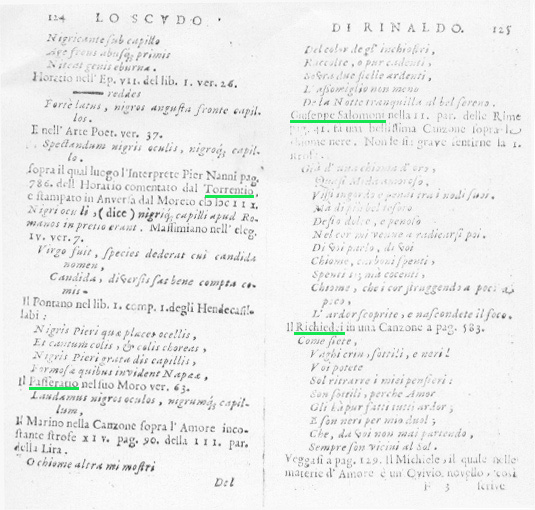 124 LO SCVDO.
Nigricante sub capillo
primis
Niteat genis eburna.
Horatio nell' Ep. VII. del lib. I. ver. 26.
reddes
Forte latus, nigros angusta fronte capil-
los.
E nell' Arte Poet. ver. 37.
Spectandum nigris oculis, nigroq; capil-
lo.
sopra il qual luogo l'Interprete Pier Nanni pag.
786. dell' Horatio comentato dal Torrentio,
e stampato in Anversa dal Moreto
Nigri oculi, (dice) nigriq; capilli apud Ro-
manos in pretio erant. Massimiano nell' eleg.
IV. ver. 7.
Virgo fuit, species dederat cui candida
nomen,
Candida, diversis sat bene compta co-
mis.
Il Pontano nel lib. I. comp. I. degli Hendecasil-
labi:
Nigris Pieri quæ places ocellis,
Et cantum colis, & colis choreas,
Nigris Pieri grata dis capillis,
Formosa quibus invident Napææ,
Il Passeratio nel suo Moro ver. 63.
Laudamus nigros oculos, nigrumq; capil-
lum,
Il Marino nella Canzone sopra l' Amore inco-
stante strofe XIV. pag. 90. della III. par.
della Lira.
O chiome altra mi mostri
Del
DI RINALDO. 125
Del color de gl' inchiostri,
Raccolte, o pur cadenti,
Sovra due stelle ardenti,
I' assomiglio non meno
De la Notte tranquilla al bel sereno.
Giuseppe Salomoni nella II. par. delle Rime
pag. 41. fa una bellissima Canzone sopra le
chiome nere. Non le sia grave sentirne la I.
strofa.
Già d' una chioma d' oro,
Quasi
Vissi ingordo e pendi tra i nodi suoi.
Mà di
Desio dolce, e penoso
Nel cor mi venne a radicarsi poi.
Di voi parlo, di voi
Chiome, carboni spenti,
Spenti sì; mà cocenti,
Chiome, che i cor struggendo a poco a
poco,
L' ardor scoprite, e nascondete il foco.
Il Richiedei in una Canzone a pag. 583.
Come siete,
Vaghi crin, sottili, e neri!
Voi potete
Sol ritrarre i miei pensieri:
Son sottili, perche Amor
Gli hà pur fatti tutti ardor;
E son neri per mio duol;
Che, da voi non mai partendo,
Sempre son vicini al Sol.
Veggasi a pag. 129. Il Michiele, il quale nelle
materie d' Amore è un' Ovivio, novello, 'così
F 3 scrive